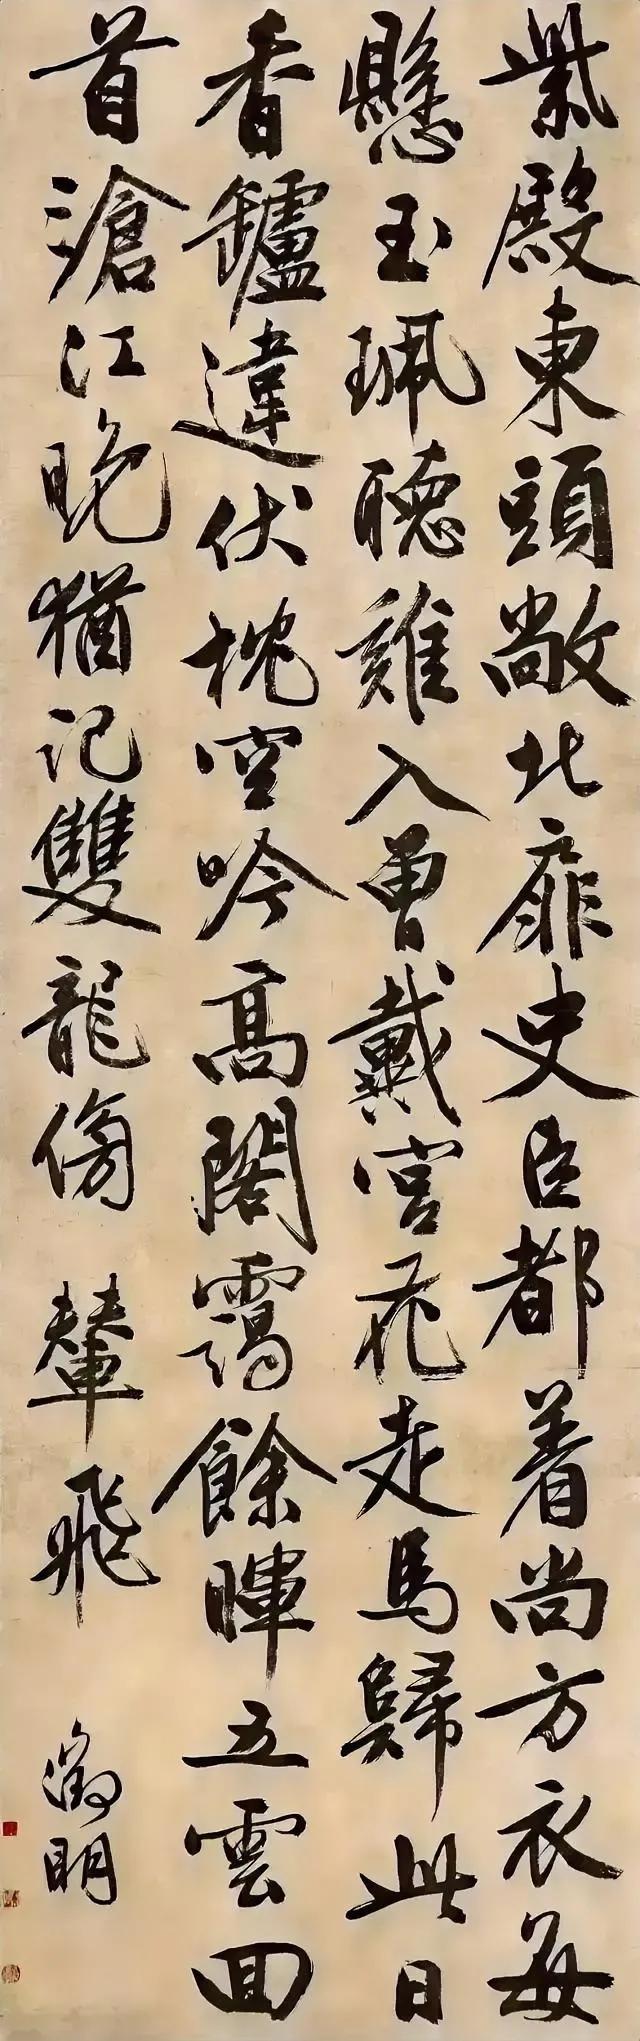 紫殿東頭敞北扉史臣都着尚方衣每
懸玉珮聽雞入曾戴宮花走馬歸此日
香鑪違伏枕空吟高閣靄餘暉五雲回
首滄江晚猶記雙龍傍輦飛
徵明